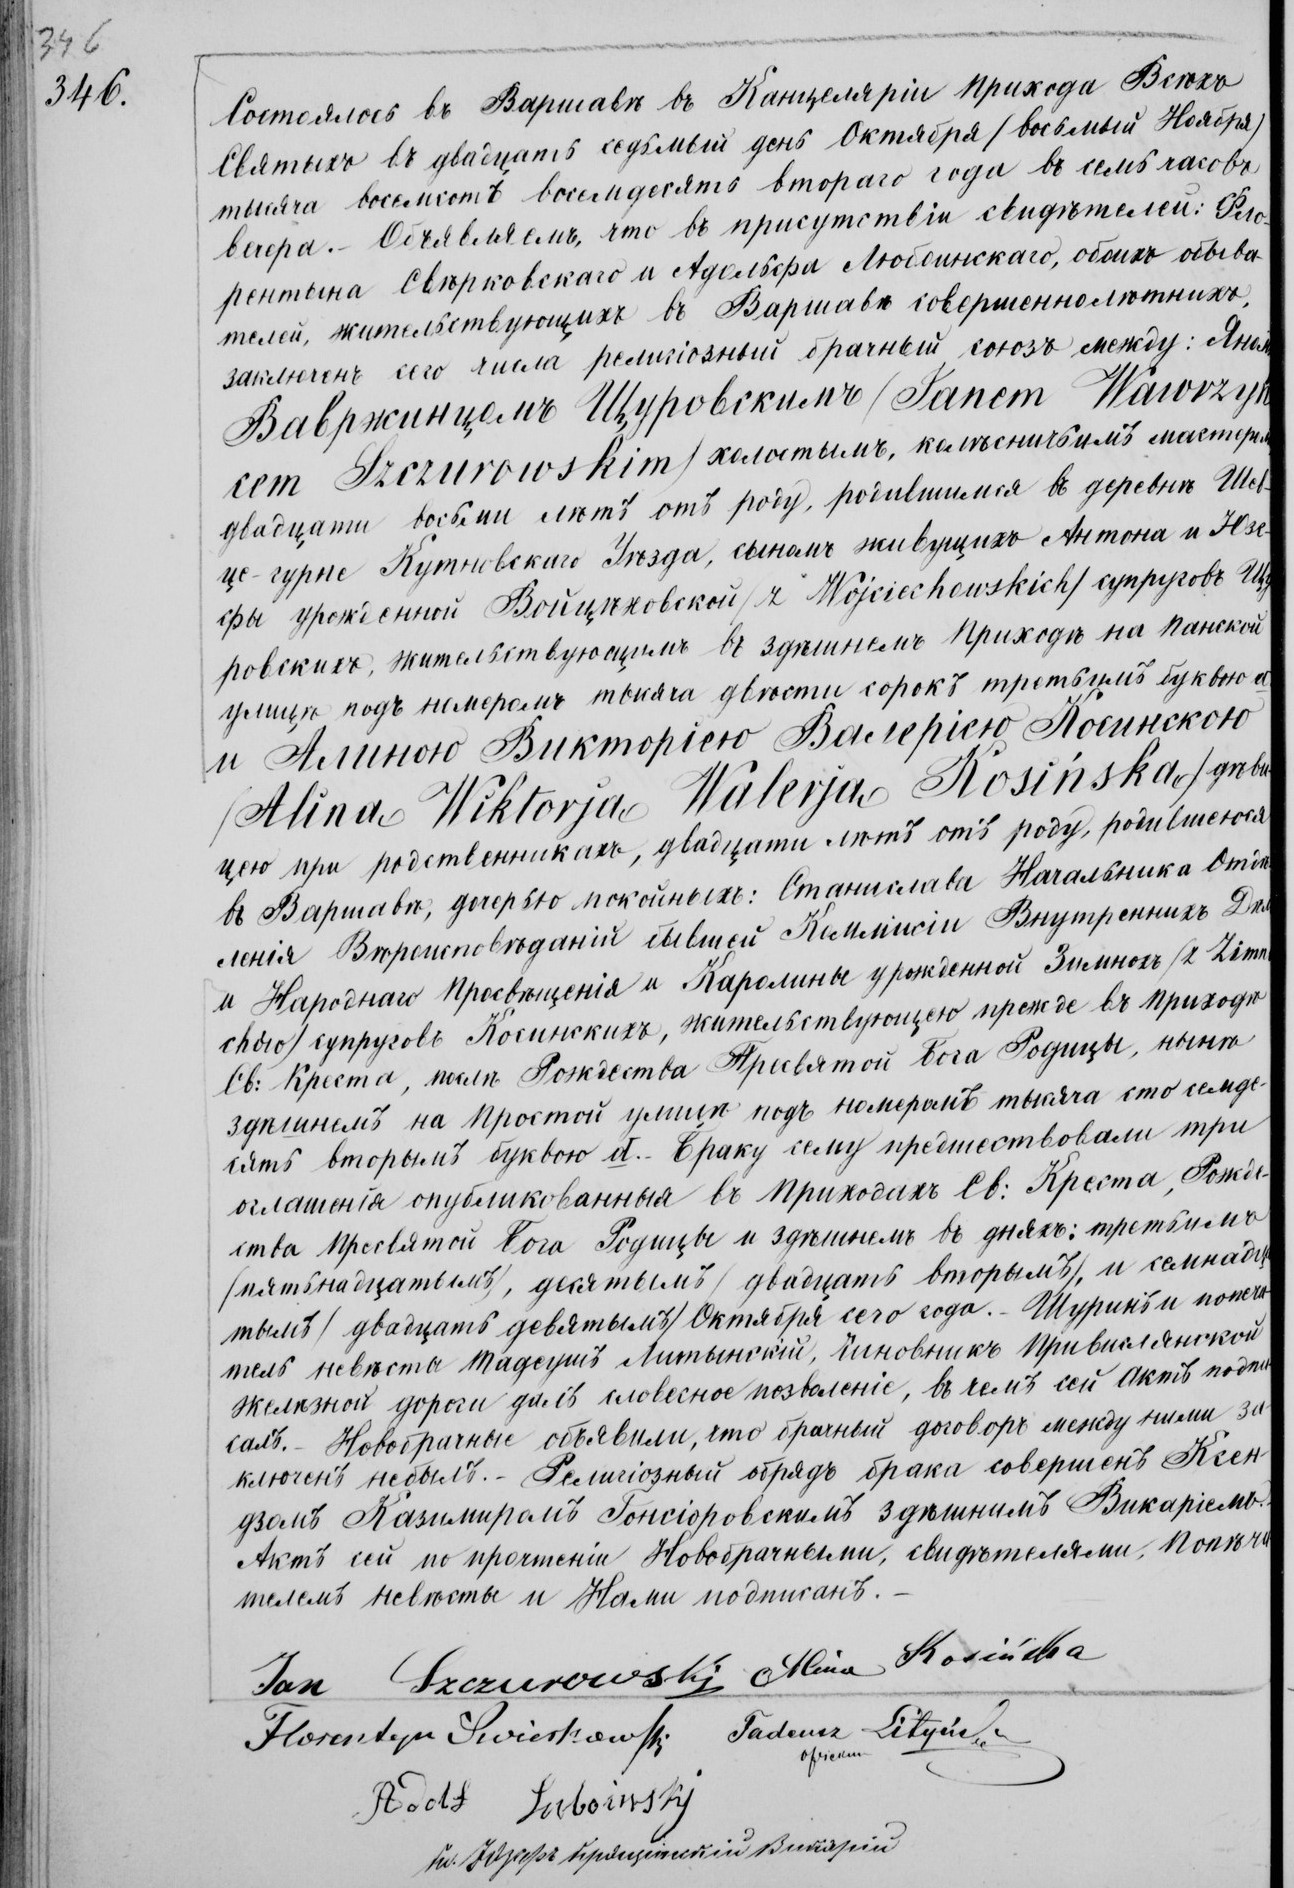 346
346.
Состоялось въ Варшавѣ въ Канцеляріи Прихода Всѣхъ
Святыхъ въ двадцать седьмый день Октября /восьмый Ноября/
тысяча восемсотъ восемдесять втораго года въ семь часовъ
вечера.- Объявляемъ, что въ присутствіи свидѣтелей: Фло-
рентына Свѣрковскаго и Адольфа Любоинскаго, обоихъ обыва-
телей, жительствующихъ въ Варшавѣ совершеннолѣтнихъ,
заключенъ сего числа религіозный брачный союзъ между: Яномъ
Вавржинцемъ Щуровскимъ /Janem Wawrzyń
cem Szczurowskim/ холостымъ, колѣсничьимъ мастеромъ
двадцати восьми лѣтъ отъ роду, родившимся въ деревнѣ Шев-
це-гурне Кутновскаго Уѣзда, сыномъ живущихъ Антона и Юзе-
фы урожденной Войцѣховской /z Wojciechowskich/ супруговъ Щу
ровскихъ, жительствующимъ въ здѣшнемъ Приходѣ на Панской
улицѣ подъ номеромъ тысяча двѣсти сорокъ третьимъ буквою а
и Алиною Викторіею Валеріею Косинскою
/Alina Wiktorja Walerja Kosińska/ дѣви-
цею при родственникахъ, двадцати лѣтъ отъ роду, родившеюся
въ Варшавѣ, дочерью покойныхъ: Станислава Начальника Отдѣ-
ленія Вѣроисповѣданій бывшей Коммисіи Внутреннихъ Дѣлъ
и Народнаго Просвѣщенія и Каролины урожденной Зимнохъ /z Zimno
chów/ супруговъ Косинскихъ, жительствующею прежде въ Приходѣ
Св: Креста, послѣ Рождества Пресвятой Бога Родицы, нынѣ
здѣшнемъ на Простой улицѣ подъ номеромъ тысяча сто семде-
сять вторымъ буквою d.- Браку сему предшествовали три
оглашенія опубликованныя въ Приходахъ Св: Креста, Рожде-
ства Пресвятой Бога Родицы и здѣшнемъ въ дняхъ: третьимъ
/пятьнадцатымъ/, десятымъ /двадцать вторымъ/, и семнадца
тымъ /двадцать девятымъ/ Октября сего года.- Шуринъ и попечи
тель невѣсты Тадеушъ Литынскій, Чиновникъ Привислянской
железной дороги далъ словесное позволеніе, въ чемъ сей Актъ подпи
салъ.- Новобрачные объявили, что брачный договоръ между ними за
ключенъ небылъ.- Религіозный обрядъ брака совершенъ Ксен
дзомъ Казимиромъ Гонсіоровскимъ здѣшнимъ Викаріемъ.-
Актъ сей по прочтеніи Новобрачными, свидѣтелями, Попѣчи
телемъ невѣсты и Нами подписанъ.-
Jan Szczurowski Alina Kosińska
Florentyn Swierkowski Tadeusz Lityński
opiekun
Adolf Luboinski
Кс. Юзефъ Викарій